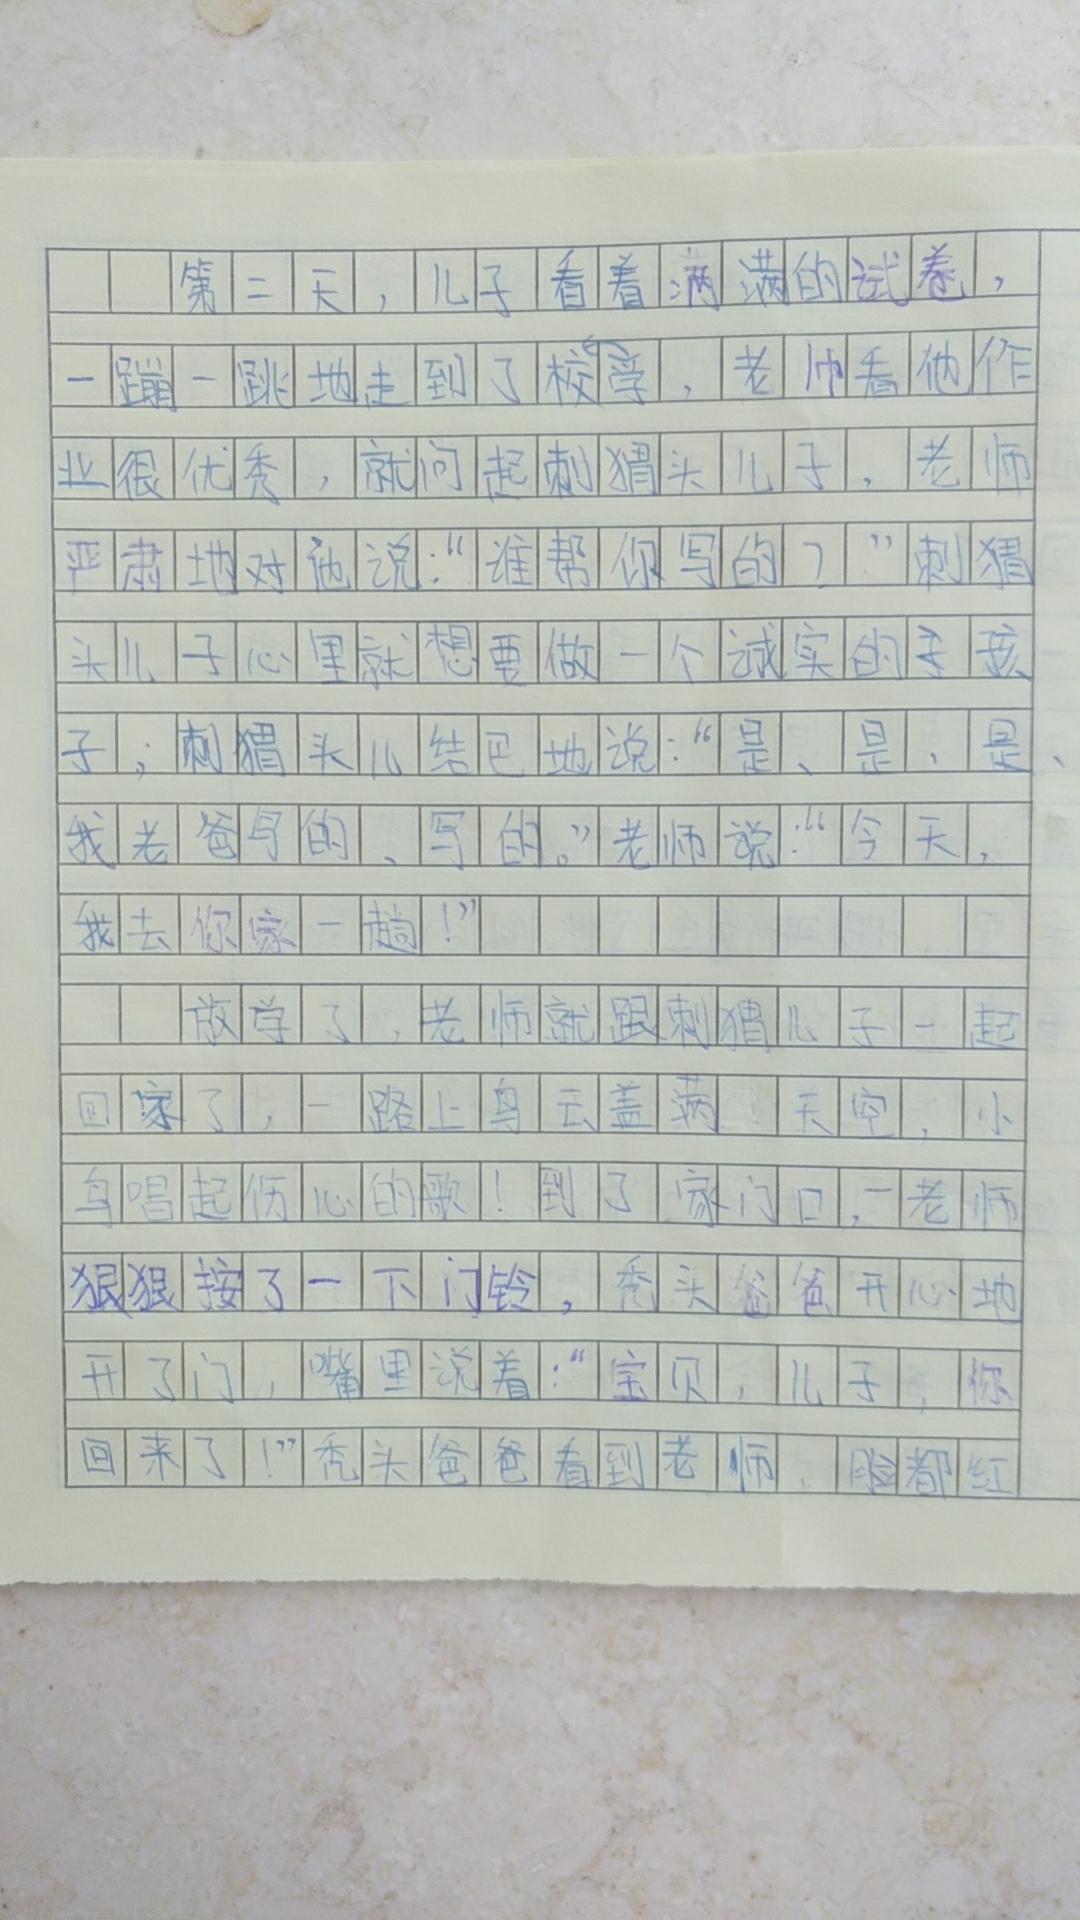 第二天，儿子看着满满的试卷，
一蹦一跳地走到了校学，老师看他作
业很优秀，就问起刺猬头儿子，老师
严肃地对他说：“谁帮你写的？”刺猬
头儿子心里就想要做一个诚实的孩
子；刺猬头儿结巴地说：“是、是、是、
我老爸写的、写的。”老师说：“今天，
我去你家一趟！”
放学了，老师就跟刺猬儿子一起
回家了，一路上乌云盖满天空，小
鸟唱起伤心的歌！到了家门口，老师
狠狠按了一下门铃，秃头爸爸开心地
开了门，嘴里说着：“宝贝，儿子，你
回来了！”秃头爸爸看到老师，脸都红